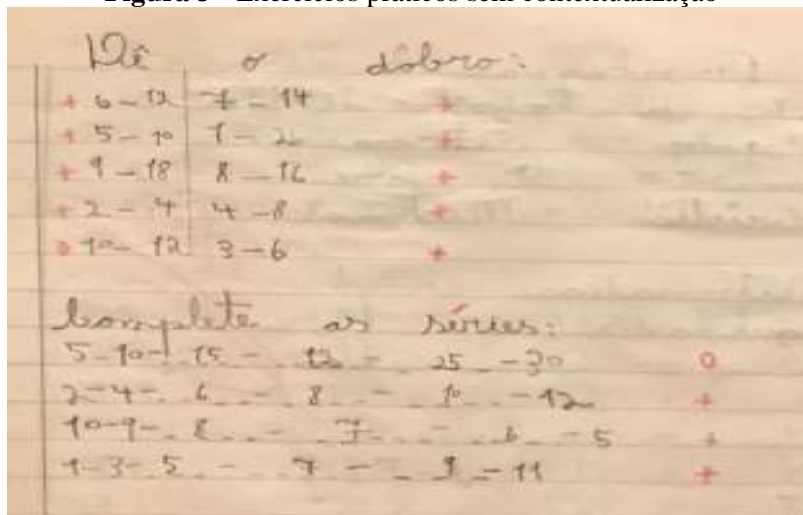 Figura 3 - Exercícios práticos sem contextualização
Dê o dôbro:
+ 6 - 12 7 - 14 +
+ 5 - 10 1 - 2 +
+ 9 - 18 8 - 16 +
+ 2 - 4 4 - 8 +
o 10 - 12 3 - 6 +
Complete as séries:
5 - 10 - 15 - 12 - 25 - 30 o
2 - 4 - 6 - 8 - 10 - 12 +
10 - 9 - 8 - 7 - 6 - 5 +
1 - 3 - 5 - 7 - 9 - 11 +